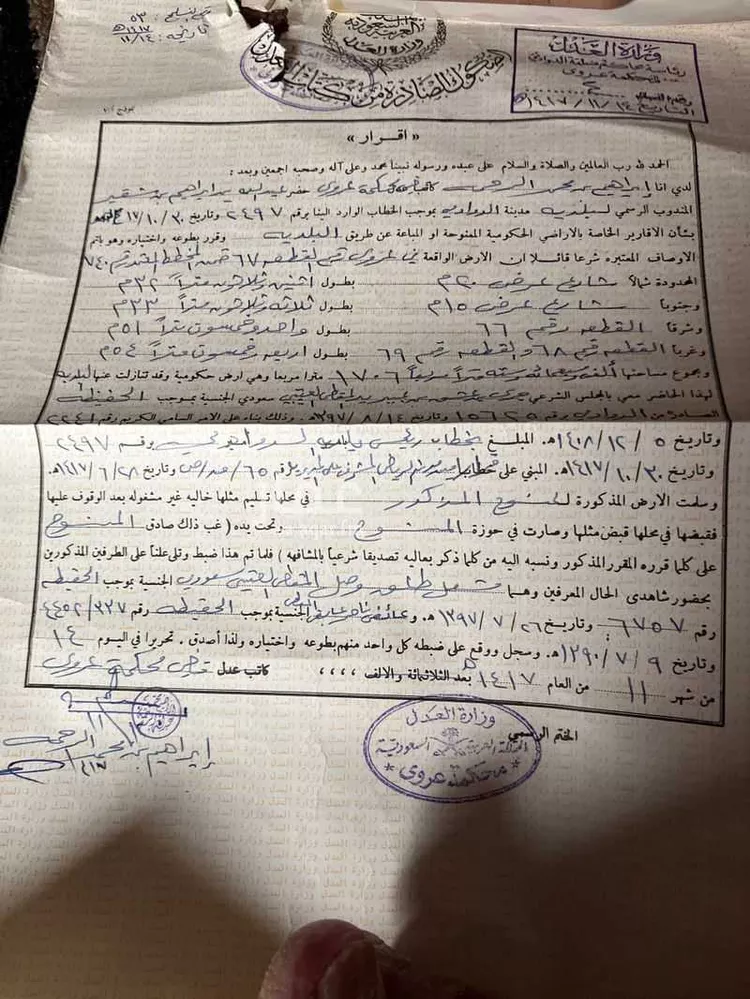 رقم التسجيل: ٥٣
تاريخه: ١٤١٧/١١/١٤هـ
وزارة العدل
صكوك الصادرة من كتابة العدل
وزارة العدل
رئاسة محاكم منطقة الدوادمي
المحكمة عروى
التاريخ ١٤ / ١١ / ١٤١٧هـ
« اقرار »
الحمد لله رب العالمين والصلاة والسلام على عبده ورسوله نبينا محمد وعلى آله وصحبه اجمعين وبعد :
لدي انا إبراهيم بن محسن قاضي محكمة عروى حضر عبدالله بن ابراهيم بن شقير
المندوب الرسمي لبلدية مدينة الدوادمي بموجب الخطاب الوارد الينا برقم ٢٤٩٧ وتاريخ ٣٠/١٠/١٤١٧هـ
بشأن الأقارير الخاصة بالاراضي الحكومية الممنوحة او المباعة عن طريق البلدية وقرر بطوعه واختياره وهو باتم
الاوصاف المعتبره شرعا قائلا ان الارض الواقعة في عروى رقم القطعه ٦٧ ضمن المخطط رقم ٧٤٠
المحدودة شمالا شارع عرض ٢٠م بطول اثنين وثلاثون متراً ٣٢م
وجنوبا شارع عرض ١٥م بطول ثلاثة وثلاثون متراً ٣٣م
وشرقا القطعه رقم ٦٦ بطول واحد وخمسون متراً ٥١م
وغربا القطعه رقم ٦٨ والقطعه رقم ٦٩ بطول اربعه وخمسون متراً ٥٤م
ومجموع مساحتها ألف وسبعمائه وسته متراً مربعاً ١٧٠٦ مترا مربعا وهي ارض حكومية وقد تنازلت عنها البلدية
لهذا الحاضر معي بالمجلس الشرعي العتيبي سعودي الجنسية بموجب الحفيظه
الصادره من الدوادمي برقم ١٥٦٢٥ وتاريخ ١٤/٨/١٣٩٧هـ وذلك بناء على الامر السامي الكريم رقم ٢٢٤١
وتاريخ ٥ / ١٢ / ١٤٠٨هـ. المبلغ بخطاب رئيس برقم ٢٤٩٧
وتاريخ ٣٠/١٠/١٤١٧هـ. المبني على خطاب برقم ٦٥ وتاريخ ٢٨/٦/١٤١٧هـ.
وسلمت الارض المذكورة للممنوح المذكور في محلها تسليم مثلها خاليه غير مشغوله بعد الوقوف عليها
فقبضها في محلها قبض مثلها وصارت في حوزة الممنوح وتحت يده ( غب ذلك صادق الممنوح
على كلما قرره المقرر المذكور ونسبه اليه من كلما ذكر بعاليه تصديقا شرعياً بالمشافهه ) فلما تم هذا ضبط وتلي علناً على الطرفين المذكورين
بحضور شاهدي الحال المعرفين وهما العتيبي سعودي الجنسية بموجب الحفيظه
رقم ٦٧٥٧ وتاريخ ٢٦/٧/١٣٩٧هـ. الجنسية بموجب الحفيظه رقم ٤٤٥٢/٣٣٧
وتاريخ ٩/٧/١٣٩٠هـ. وسجل ووقع على ضبطه كل واحد منهم بطوعه واختياره ولذا أصدق . تحريرا في اليوم ١٤
من شهر ١١ من العام ١٤١٧هـ بعد الثلاثمائة والالف ،،،، كاتب عدل قاضي محكمة عروى
الختم الرسمي
وزارة العدل
المملكة العربية السعودية
محكمة عروى